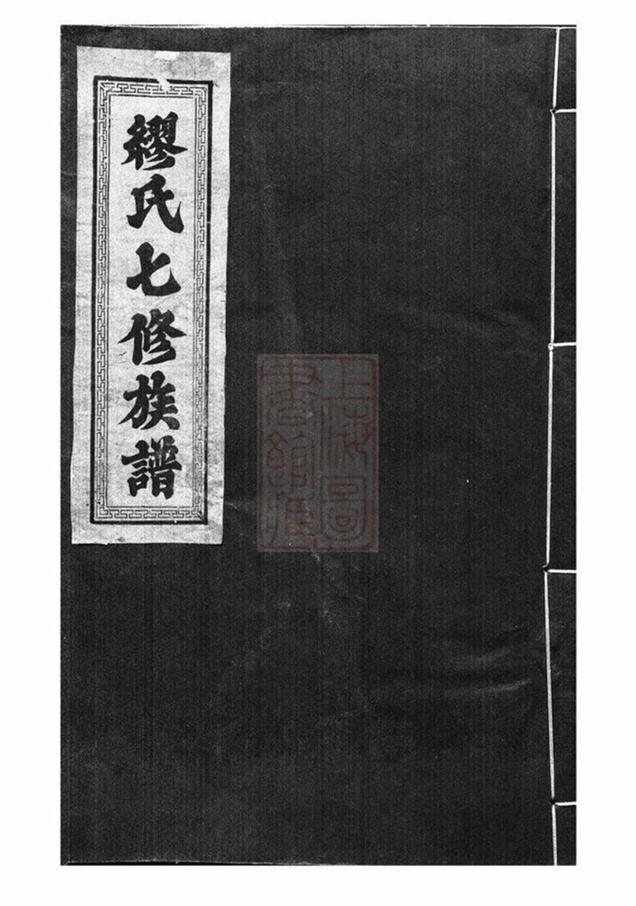 繆氏七修族譜
上海圖
書館藏